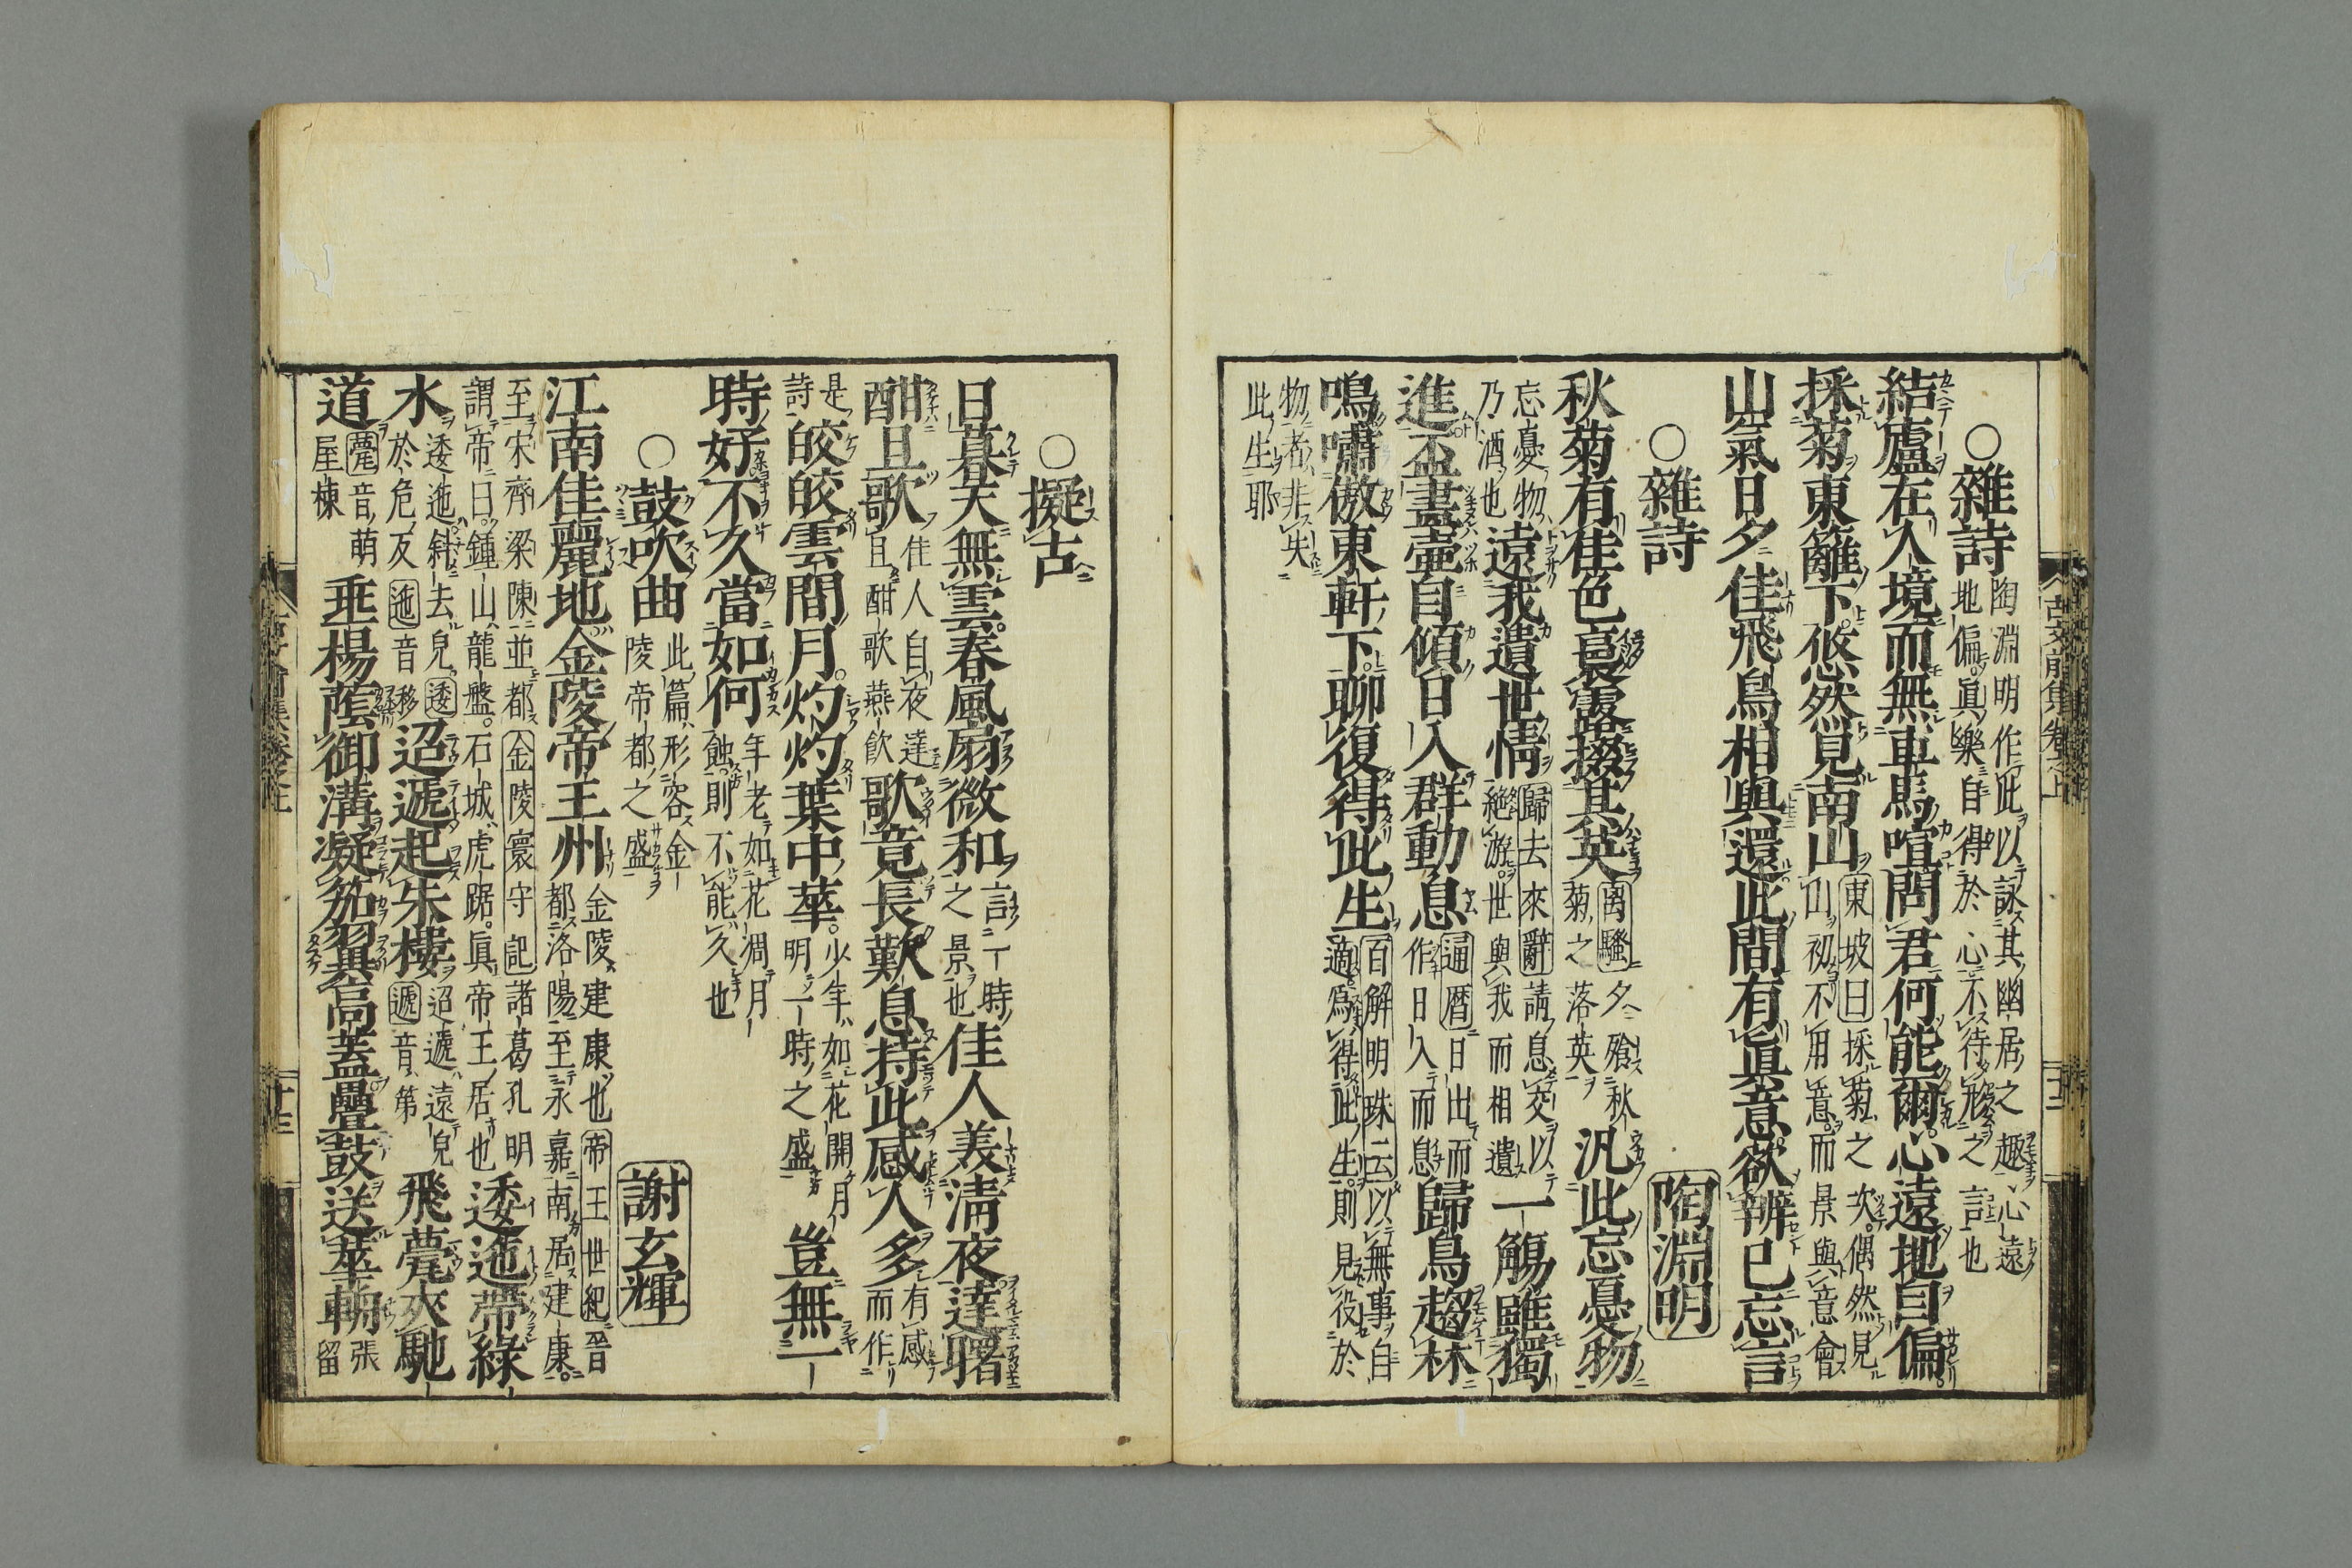 ○雜詩 陶淵明作此以詠其幽居之趣心遠地偏眞樂自得於心不待形之言也
結廬在人境而無車馬喧問君何能爾心遠地自偏
採菊東籬下悠然見南山 東坡曰採菊之次偶然見山初不用意而景與意會
山氣日夕佳飛鳥相與還此間有眞意欲辨已忘言
○雜詩 陶淵明
秋菊有佳色裛露掇其英 离騷夕飱秋菊之落英 汎此忘憂物
忘憂物乃酒也 遠我遺世情 歸去來辭請息交以絶游世與我而相遺 一觴雖獨
進盃盡壺自傾日入群動息 遁曆日出而作日入而息 歸鳥趨林
鳴嘯傲東軒下聊復得此生 百解明珠云以無事自適爲得此生則見役於
物者非失此生耶
○擬古
日暮天無雲春風扇微和 言一時之景也 佳人美淸夜達曙
酣且歌 佳人自夜達且酣歌燕飮 歌竟長歎息持此感人多 有感而作
是詩 皎皎雲間月灼灼葉中華 少年如花開月明一時之盛 豈無一
時好不久當如何 年老如花凋月蝕則不能久也
○鼓吹曲 此篇形容金陵帝都之盛 謝玄輝
江南佳麗地金陵帝王州 金陵建康也帝王世紀晉都洛陽至永嘉南居建康
至宋齊梁陳並都金陵寰守記諸葛孔明謂帝曰鍾山龍盤石城虎踞眞帝王居也 逶迤帶綠
水 逶迤斜去皃逶於危反迤音移 迢遞起朱樓 迢遞遠皃遞音第 飛甍夾馳
道 甍音萌屋棟 垂楊蔭御溝凝笳翼高蓋疊鼓送華輈 張留
古文前集卷之上
十二
十三